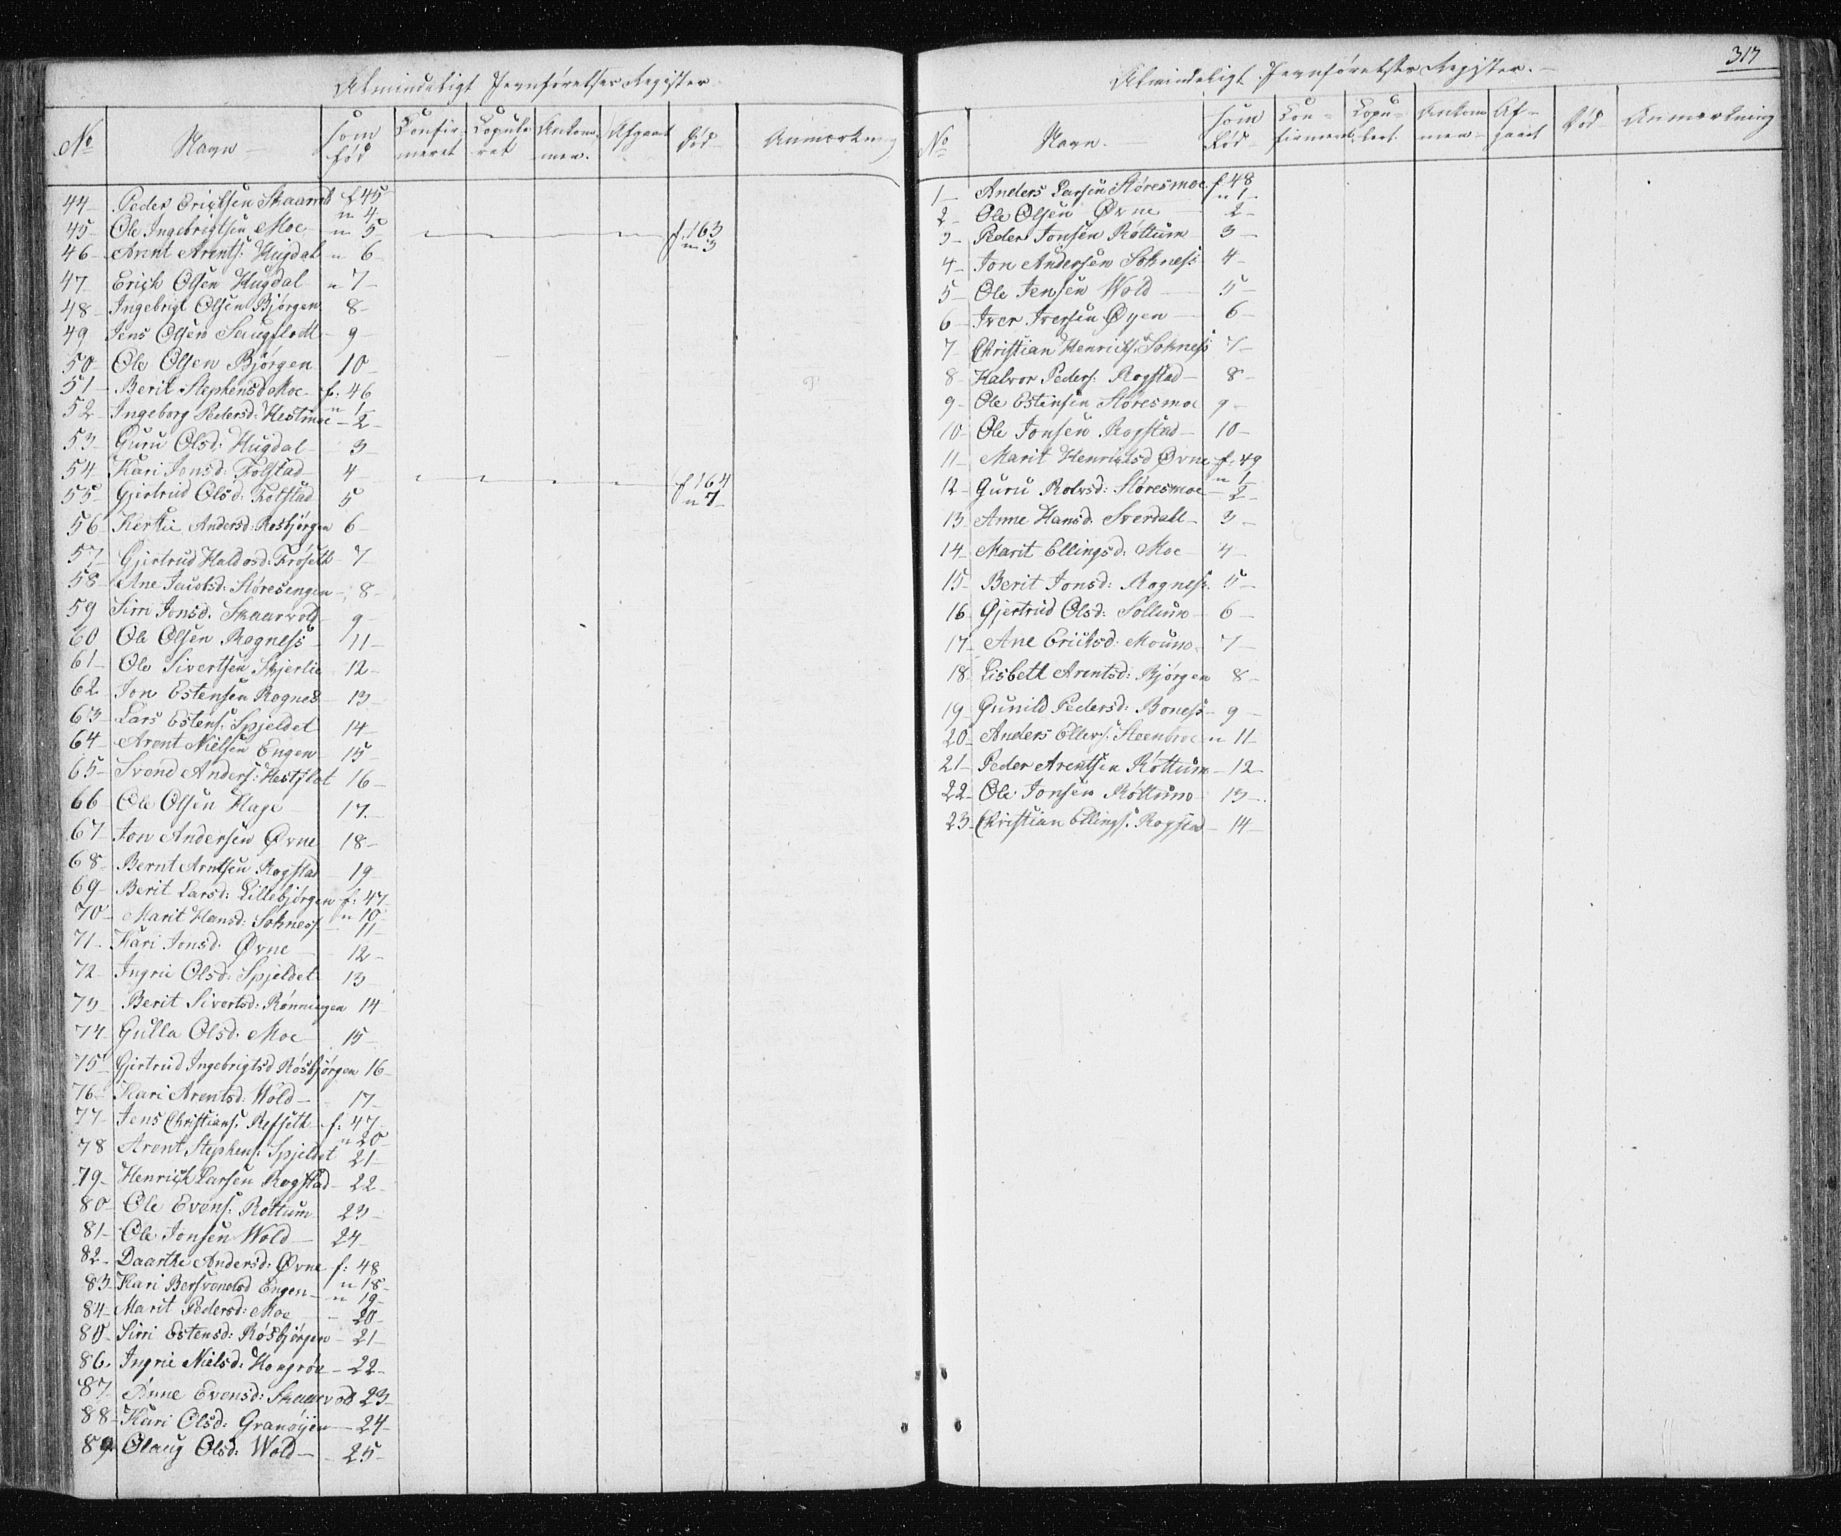 Almindeligt Jevnførelses Register
No Navn som fød Confirmeret Copuleret Ankommen. Afgaaet Død Anmærkning
44 Peder Erichsen f 45 n 4
45 Ole Ingebrigtsen Moe n 5 f. 163 n 3
46 Arent Arents: Hugdal n 6
47 Erich Olsen Hugdal n 7
48 Ingebrigt Olsen Bjørgen 8
49 Jens Olsen 9
50 Ole Olsen Bjørgen 10
51 Berit Stephensd Moe f. 46 n 1
52 Ingeborg Pedersd: Hestmoe 2
53 Guru Olsd: Hugdal 3
54 Kari Jonsd: Folstad 4 f 164 n 7
55 Gjertrud Olsd: Folstad 5
56 Andersd: Rosbjørgen 6
57 Gjertrud Haldosd: Frøseth 7
58 Ane Jacobsd: Støresengen 8
59 Sirri Jonsd: Skaarvold 9
60 Ole Olsen Rogness 11
61 Ole Sivertsen Skjerlie 12
62 Jon Estensen Rognes 13
63 Lars Estens: Spjeldet 14
64 Arent Nielsen Engen 15
65 Svend Anders: Hestflot 16
66 Ole Olsen Hage 17
67 Jon Andersen Øvne 18
68 Bernt Arntsen Rogstad 19
69 Berit Larsd: Lillebjørgen f: 47 n 10
70 Marit Hansd: Sokness 11
71 Kari Jonsd: Øvne 12
72 Ingrie Olsd: Spjeldet 13
73 Berit Sivertsd: Rønningen 14
74 Gulla Olsd: Moe 15
75 Gjertrud Ingebrigtsd Røsbjørgen 16
76 Kari Arentsd: Wold 17
77 Jens Christians: Refseth f: 47 n 20
78 Arent Stephens: Spjeldet 21
79 Henrich Larsen Rogstad 22
80 Ole Evens: Røttum 23
81 Ole Jonsen Wold 24
82 Daarthe Andersd: Øvne f: 48 n 18
83 Kari Bersvendsd Engen n 19
84 Marit Pedersd: Moe 20
85 Sirri Estensd: Røsbjørgen 21
86 Ingrie Nielsd: Hongrøe 22
87 Anne Evensd: Skaarvod 23
88 Kari Olsd: Granøyen 24
89 Olaug Olsd: Wold 25
317
Almindeligt Jevnførelses Register.
No Navn. som fød Confirmeret Copulert Ankommen Afgaaet Død Anmærkning
1 Anders Larsen Støresmoe f 48 n 1
2 Ole Olsen Øvne 2
3 Peder Jonsen Røttum 3
4 Jon Andersen Sokness 4
5 Ole Jensen Wold 5
6 Iver Iversen Øyen 6
7 Christian Henrichs: Sokness 7
8 Halvor Peders: Rogstad 8
9 Ole Estensen Støresmoe 9
10 Ole Jonsen Rogstad 10
11 Marit Henrichsd Øvne f. 49 n 1
12 Guru Rolvsd: Støresmoe 2
13 Anne Hansd. Sverdall 3
14 Marit Ellingsd: Moe 4
15 Berit Jonsd: Rogness 5
16 Gjertrud Olsd: Sollum 6
17 Ane Erichsd: Moumo 7
18 Lisbeth Arentsd: Bjørgen 8
19 Gunild Pedersd: Boness 9
20 Anders Ellevs: Steenbroe n 11
21 Peder Arentsen Røttum 12
22 Ole Jonsen Røttum 13
23 Christian Ellings: Rogstad 14